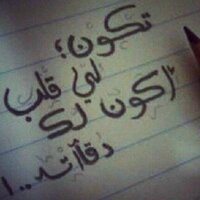 تكون؛
لي قلب
اكون لك
دقآته..!